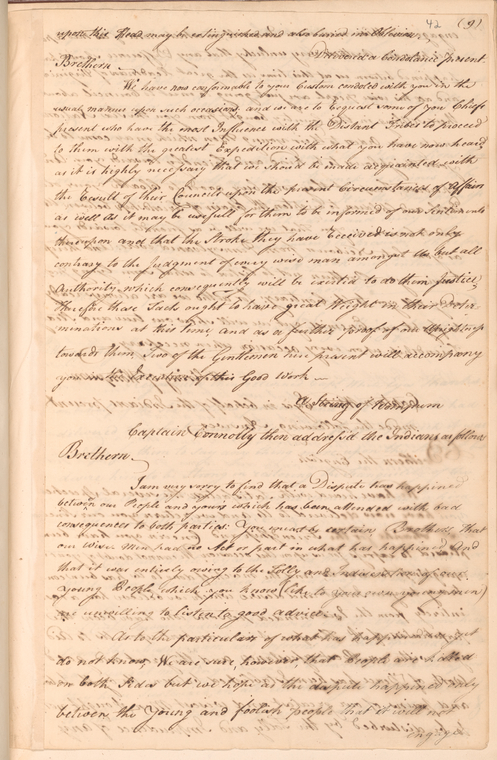 42 (9)
upon this Head may be extinguished and also buried in Oblivion
Delivered a Condolance Present.
Brethern
We have now conformable to your Custom condoled with you in the
usual manner upon such occasions, and we are to request some of you Chiefs
present who have the most Influence with the Distant Tribes to proceed
to them with the greatest Expedition with what you have now heard,
as it is highly necessary that we should be made acquainted with
the Result of their Councils upon the present Circumstances of Affairs
as well as it may be usefull for them to be informed of our Sentiments
thereupon and that the Stroke they have Received is not only
contrary to the Judgment of every wise man amongst us, but all
Authority, which consequently will be exerted to do them Justice,
therefore these Facts ought to have great Weight in their Deter
minations at this time, and as a further proof of our Uprightness
towards them Two of the Gentlemen here present will accompany
you in the Execution of this Good Work
A String of Wampum
Captain Connolly then address'd the Indians as follows
Brethern
I am very sorry to find that a Dispute has happened
between our People and yours which has been attended with bad
consequences to both parties: You must be certain Brothers That
our wise Men had no Act or part in what has happened And
that it was entirely owing to the Folly and Indiscretion of our
young People which you know (like to your own young men)
are unwilling to listen to good advice.
As to the particulars of what has happened we yet
do not know, We are sure, however, that People are killed
on both Sides but we hope as the dispute happened only
between the Young and foolish people that it will not
engage